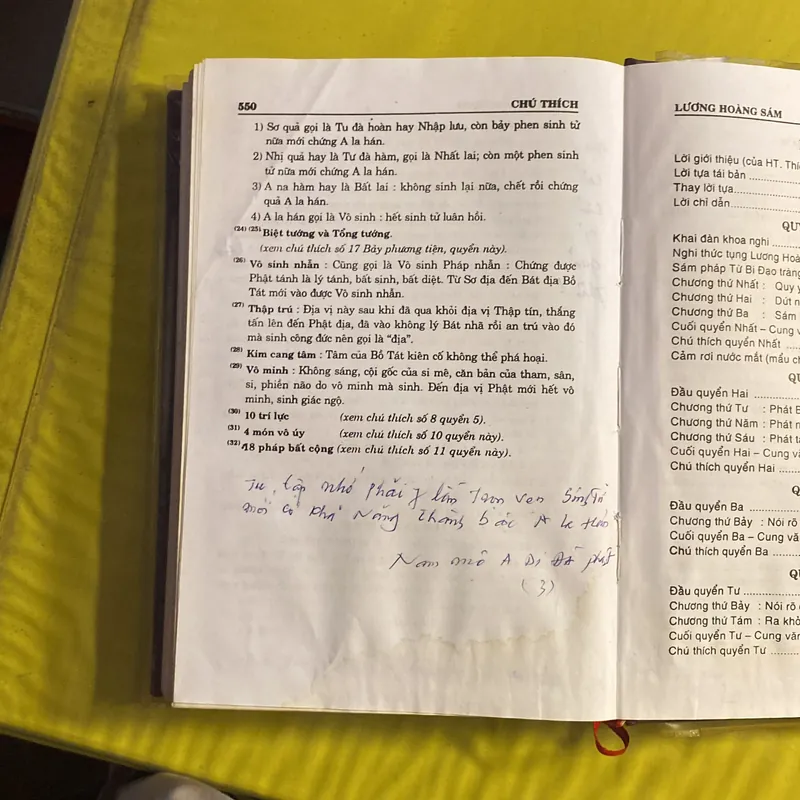 550 CHÚ THÍCH
1) Sơ quả gọi là Tu đà hoàn hay Nhập lưu, còn bảy phen sinh tử
nữa mới chứng A la hán.
2) Nhị quả hay là Tư đà hàm, gọi là Nhất lai; còn một phen sinh
tử nữa mới chứng A la hán.
3) A na hàm hay là Bất lai : không sinh lại nữa, chết rồi chứng
quả A la hán.
4) A la hán gọi là Vô sinh : hết sinh tử luân hồi.
(24) (25) Biệt tướng và Tổng tướng.
(xem chú thích số 17 Bảy phương tiện, quyển này).
(26) Vô sinh nhẫn : Cũng gọi là Vô sinh Pháp nhẫn : Chứng được
Phật tánh là lý tánh, bất sinh, bất diệt. Từ Sơ địa đến Bát địa Bồ
Tát mới vào được Vô sinh nhẫn.
(27) Thập trú : Địa vị này sau khi đã qua khỏi địa vị Thập tín, thẳng
tấn lên đến Phật địa, đã vào không lý Bát nhã rồi an trú vào đó
mà sinh công đức nên gọi là “địa”.
(28) Kim cang tâm : Tâm của Bồ Tát kiên cố không thể phá hoại.
(29) Vô minh : Không sáng, cội gốc của si mê, căn bản của tham, sân,
si, phiền não do vô minh mà sinh. Đến địa vị Phật mới hết vô
minh, sinh giác ngộ.
(30) 10 trí lực (xem chú thích số 8 quyển 5).
(31) 4 món vô úy (xem chú thích số 10 quyển này).
(32) 18 pháp bất cộng (xem chú thích số 11 quyển này).
Tu tập nhớ phải 7 lần sinh tử
mới có khả năng thành bậc A la hán
Nam mô A Di Đà phật
(3)
LƯƠNG HOÀNG SÁM
Lời giới thiệu (của HT.
Lời tựa tái bản
Thay lời tựa
Lời chỉ dẫn
Khai đàn khoa nghi
Nghi thức tụng Lương
Sám pháp Từ Bi Đạo tràng
Chương thứ Nhất : Quy
Chương thứ Hai :
Chương thứ Ba : Sám
Cuối quyển Nhất –
Chú thích quyển Nhất
Cảm rơi nước mắt (mẩu
Đầu quyển Hai
Chương thứ Tư : Phát
Chương thứ Năm : Phát
Chương thứ Sáu : Phát
Cuối quyển Hai – Cung
Chú thích quyển Hai
Đầu quyển Ba
Chương thứ Bảy : Nói rõ
Cuối quyển Ba – Cung
Chú thích quyển Ba
Đầu quyển Tư
Chương thứ Bảy : Nói rõ
Chương thứ Tám : Ra
Cuối quyển Tư – Cung
Chú thích quyển Tư